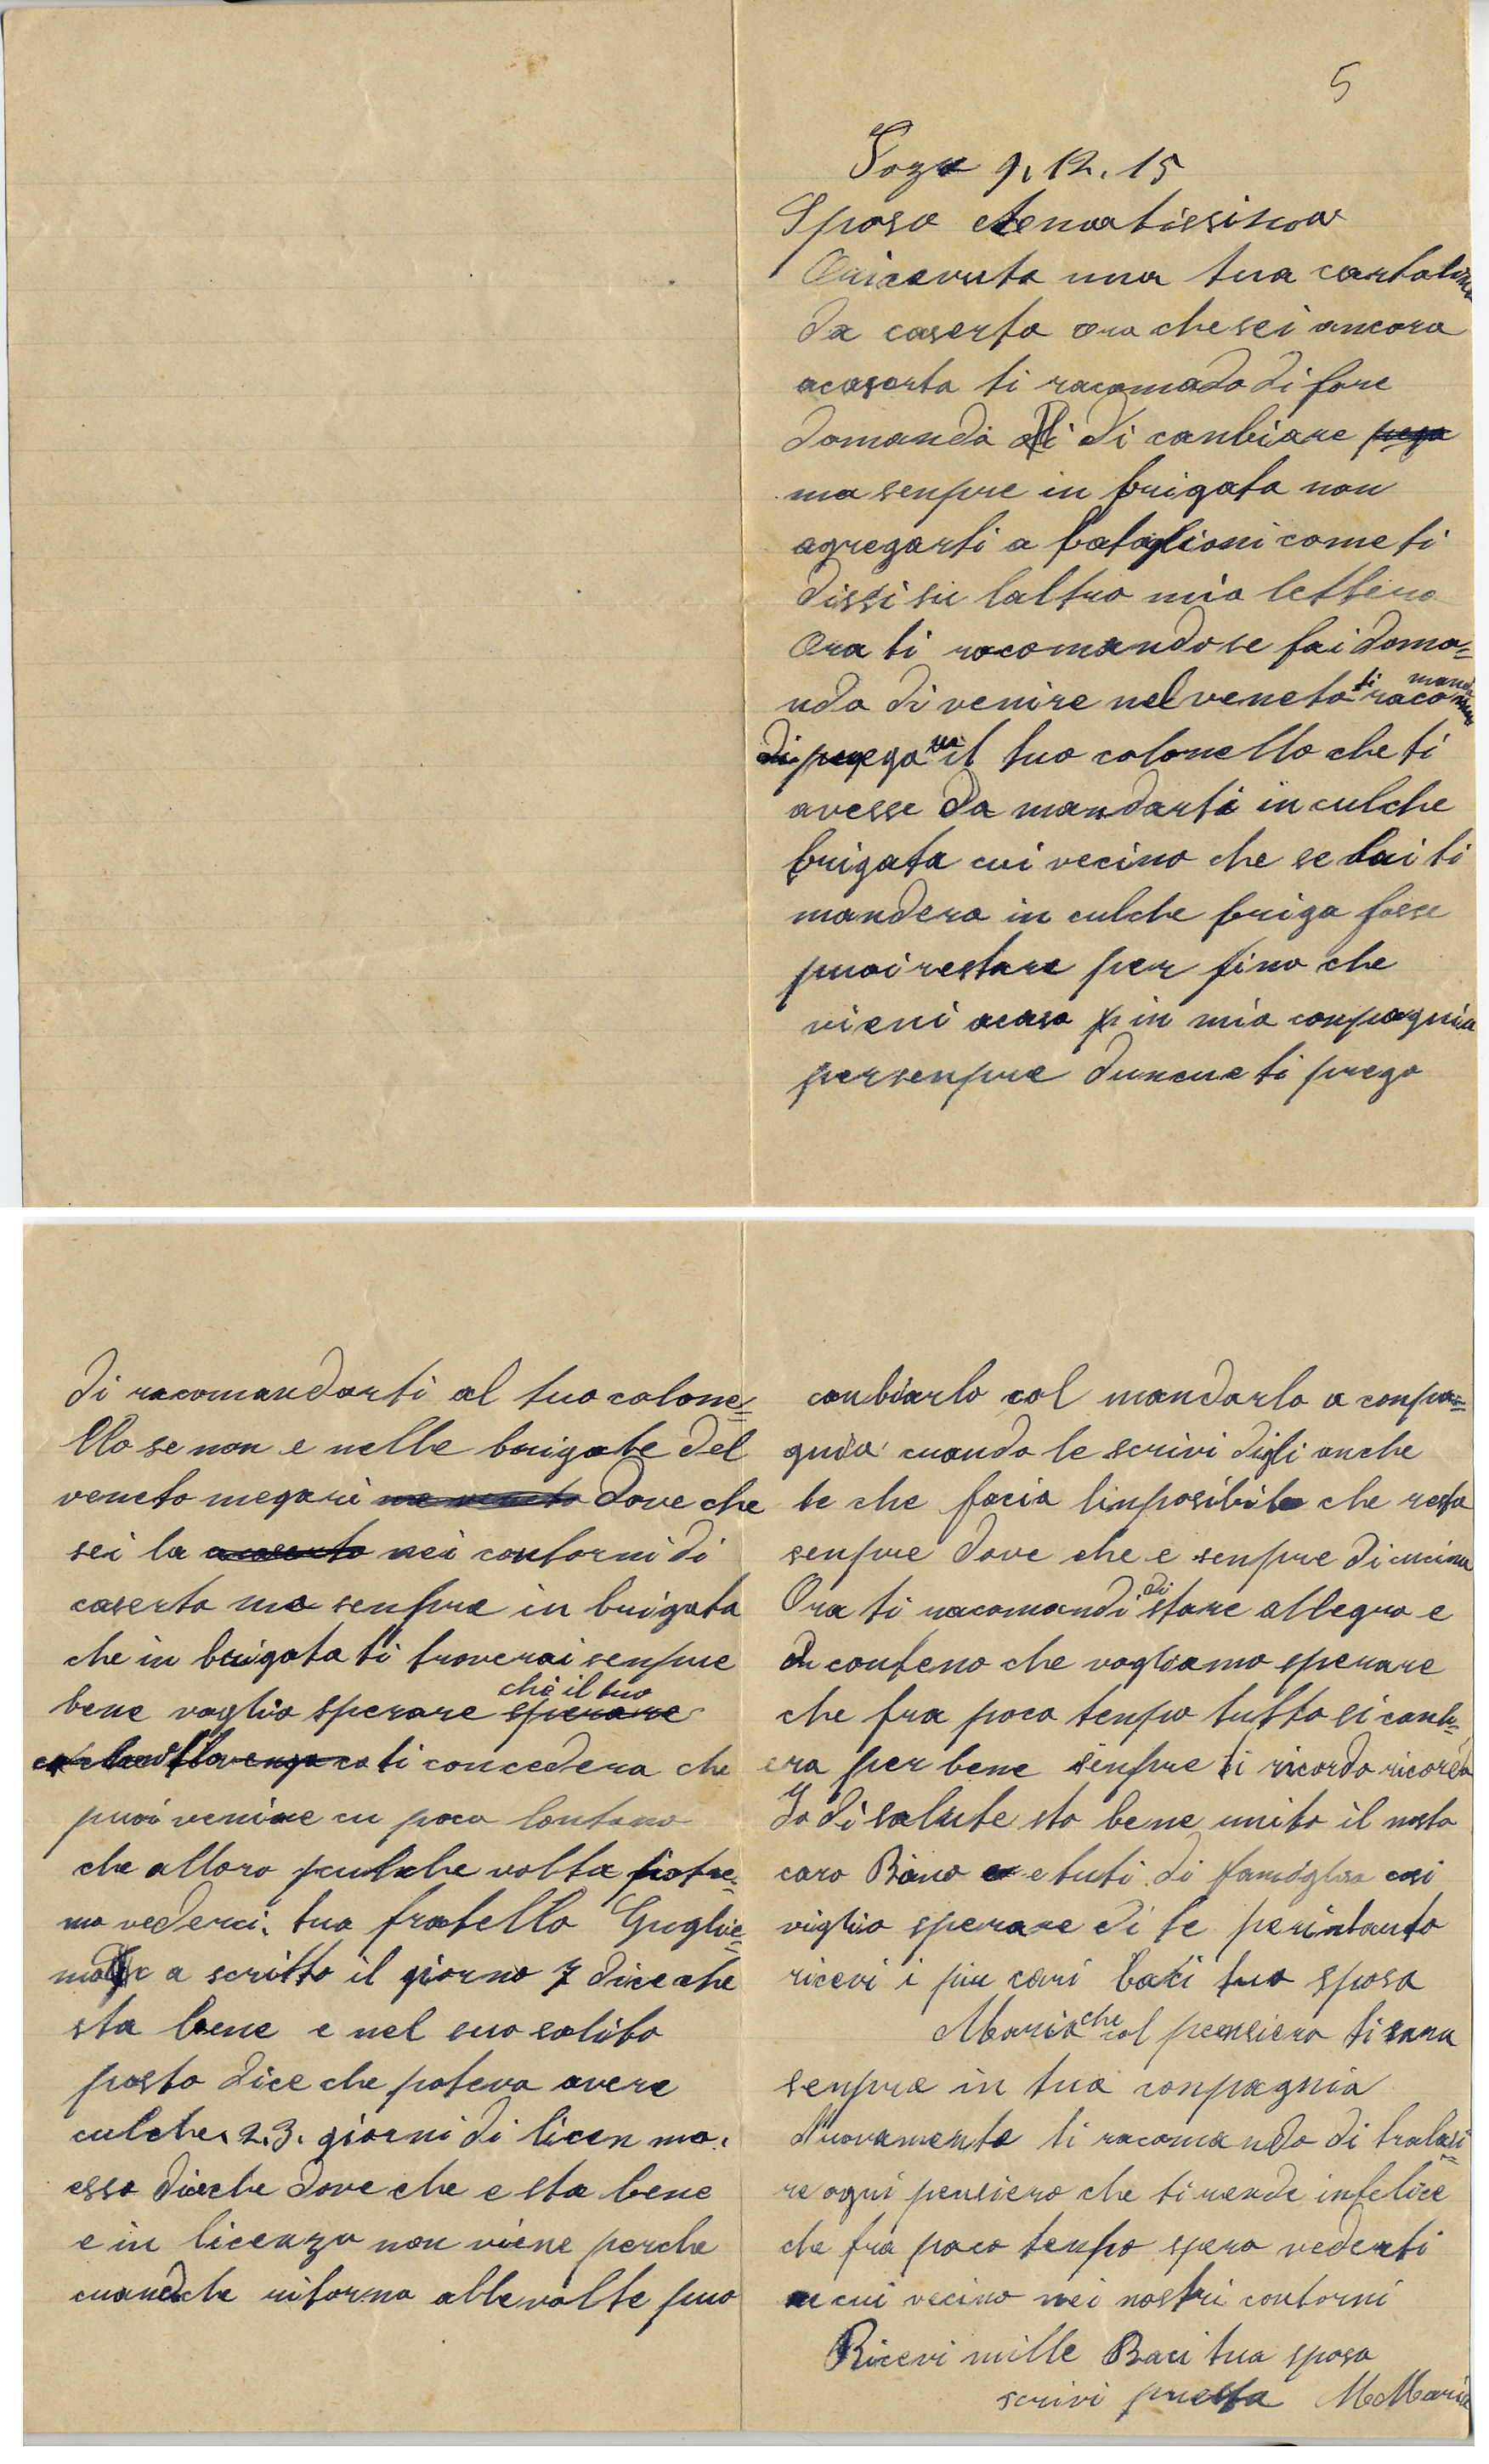 5
Foza 9. 12. 15
Sposo Amatissimo
Oricevuto una tua cartolina
da caserta ora che sei ancora
acaserta ti racomado di fare
domanda di di canbiare
ma senpre in brigata non
agregarti a bataglioni come ti
dissi su laltra mia lettera
Ora ti racomando se fai doma=
nda di venire nel veneto ti racomando
prega il tuo colonello che ti
avesse da mandarti in culche
brigata cui vecino che se lui ti
mandera in culche briga forse
puoi restare per fino che
vieni acasa in mia conpagnia
persenpre duncue ti prego
di racomandarti al tuo colone=
llo se non e nelle brigate del
veneto megari me veneto dove che
sei la acaserta nei contorni di
caserta ma senpre in brigata
che in brigata ti troverai senpre
bene voglio sperare sperare che il tuo
ti concedera che
puoi venire cu poco lontano
che allora culche volta potre=
mo vederci. tuo fratello Gugliel=
mo a scritto il giorno 7 dice che
sta bene e nel suo solito
posto dice che poteva avere
culche 2.3. giorni di licen ma.
esso dieche dove che e sta bene
e in licenza non viene perche
cuandche ritorna allevolte puo
canbiarlo col mandarlo a conpa=
gnia cuando le scrivi digli anche
te che facia linposibile che resta
senpre dove che e senpre di cucina
Ora ti racomandi di stare allegro e
conteno che vogliamo sperare
che fra poco tenpo tutto si canb=
era per bene senpre ti ricordo ricorda
Io di salute sto bene unito il nosto
caro Bino e tuti di famiglia cosi
viglio sperare di te perintanto
ricevi i piu cari baci tua sposa
Maria che col pensiero ti sara
senpre in tua conpagnia
Nuovamente ti racomando di tralasi=
re ogni pensiero che ti rende infelice
che fra poco tenpo spero vederti
cui vecino nei nostri contorni
Ricevi mille Baci tua sposa
scrivi presta M Maria